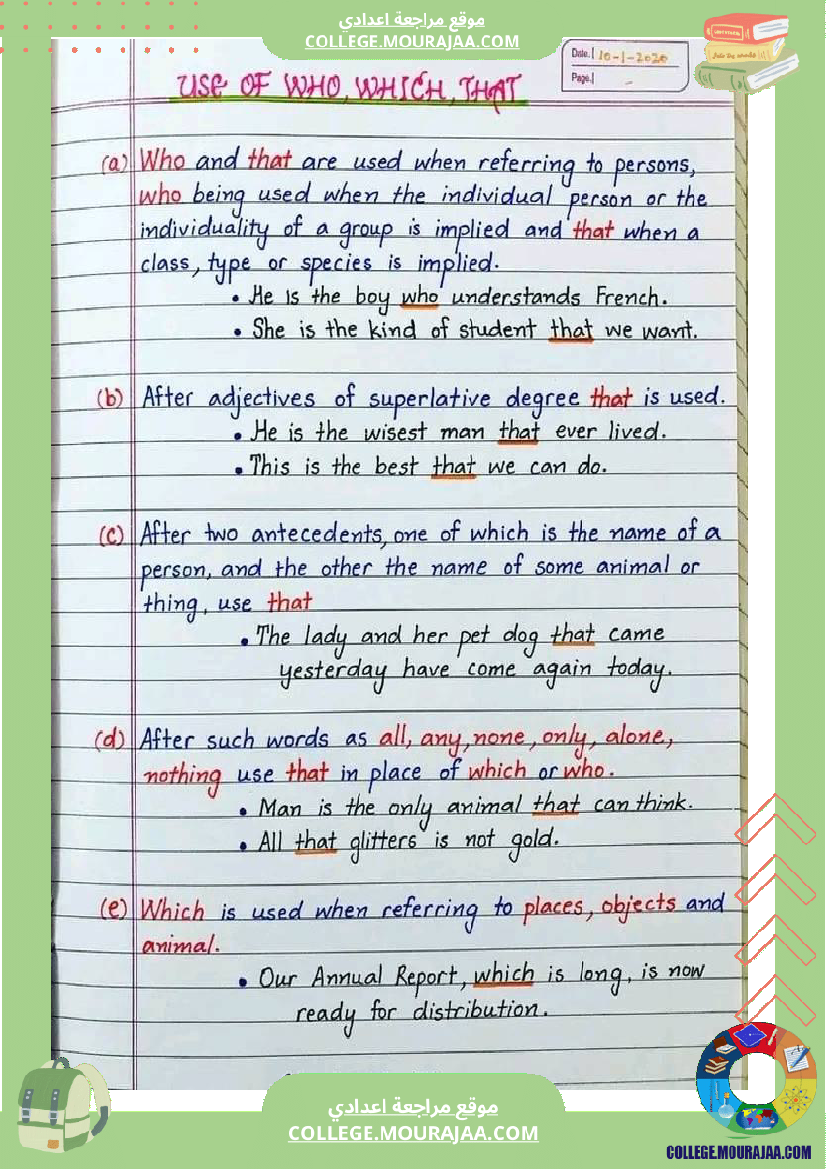 موقع مراجعة اعدادي
COLLEGE.MOURAJAA.COM
Date. 10-1-2020
Page.
USE OF WHO, WHICH, THAT
(a) Who and that are used when referring to persons,
who being used when the individual person or the
individuality of a group is implied and that when a
class, type or species is implied.
• He is the boy who understands French.
• She is the kind of student that we want.
(b) After adjectives of superlative degree that is used.
• He is the wisest man that ever lived.
• This is the best that we can do.
(c) After two antecedents, one of which is the name of a
person, and the other the name of some animal or
thing, use that
• The lady and her pet dog that came
yesterday have come again today.
(d) After such words as all, any, none, only, alone,
nothing use that in place of which or who.
• Man is the only animal that can think.
• All that glitters is not gold.
(e) Which is used when referring to places, objects and
animal.
• Our Annual Report, which is long, is now
ready for distribution.
موقع مراجعة اعدادي
COLLEGE.MOURAJAA.COM
COLLEGE.MOURAJAA.COM